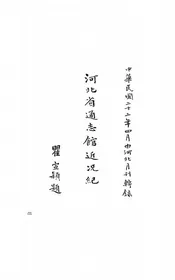 中華民國二十二年四月由河北月刊輯錄
河北省通志館近況紀
瞿宣穎題